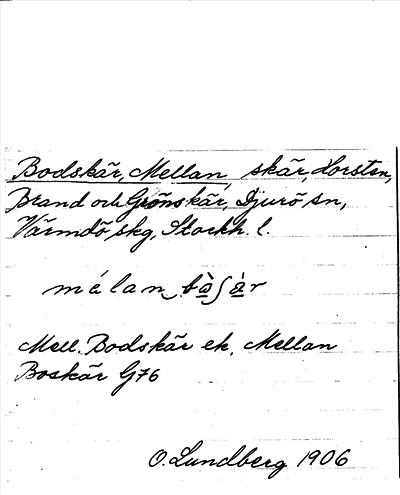 Bodskär, Mellan, skär, Horsten,
Brand och Grönskär, Djurö sn,
Värmdö skg, Stockh. l.
mélan bà̱ʃà̱r
Mell. Bodskär ek, Mellan
Boskär G76
O. Lundberg 1906